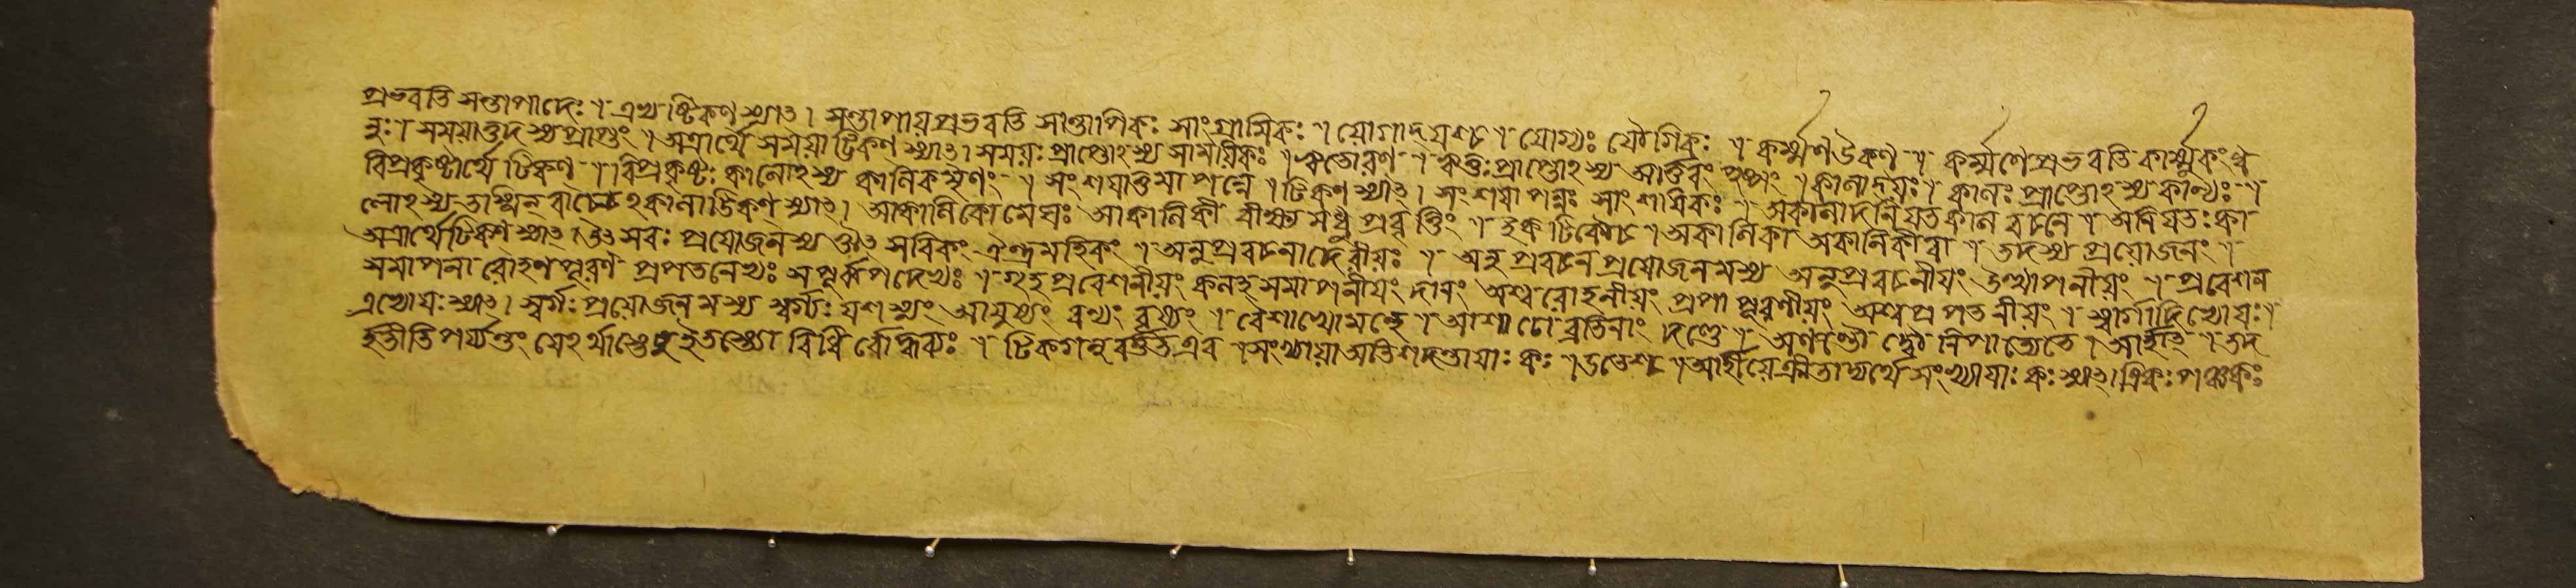 প্রভবতি সন্তাপাদেঃ । এষ্য ষ্টিকণ্ স্যাৎ । সন্তাপায় প্রভবতি সান্তাপিকঃ সাংগ্রামিকঃ । যোগাদ্যশ্চ । যোগ্যঃ যৌগিকঃ । কর্ম্মণ উকণ্ । কর্ম্মণে প্রভবতি কার্ম্মুকং ধ
নুঃ । সময়াত্তদস্য প্রাপ্তং । অত্রার্থে সময়াট্টিকণ্ স্যাৎ । সময়ঃ প্রাপ্তোঽস্য সাময়িকঃ । ঋতোরণ্ । ঋতুঃ প্রাপ্তোঽস্য আর্ত্তবং পুষ্পং । কালাদ্যঃ । কালঃ প্রাপ্তোঽস্য কাল্যঃ ।
বিপ্রকৃষ্টার্থে টিকণ্ । বিপ্রকৃষ্টঃ কালোঽস্য কালিকমৃণং । সংশয়াত্তমাপন্নে । টিকণ্ স্যাৎ । সংশয়াপন্নঃ সাংশয়িকঃ । অকালাদনিয়তকাল বচনে । অনিয়তঃ কা
লোঽস্য তাস্মিন্ বাচ্যেঽকালাট্টিকণ্ স্যাৎ । আকালিকো মেঘঃ আকালিকীং বীক্ষ্য মধুপ্রবৃত্তিং । ইক টিকৌ চ । অকালিকা অকালিকী বা । তদস্য প্রয়োজনং ।
অত্রার্থে টিকণ্ স্যাৎ । উৎসবঃ প্রয়োজনমস্য ঔৎসবিকং ঐন্দ্রমহিকং । অনুপ্রবচনাদেরীয়ঃ । অনুপ্রবচন প্রয়োজনমস্য অনুপ্রবচনীয়ং উত্থাপনীয়ং । প্রবেশন
সমাপনা রোহণ পূরণ প্রপতনেভ্যঃ সপূর্ব্বপদেভ্যঃ । গৃহ প্রবেশনীয়ং কলহ সমাপনীয়ং দানং অশ্ব রোহনীয়ং প্রপা পূরণীয়ং অশ্ব প্রপতনীয়ং । স্বর্গাদিভ্যো যঃ ।
এভ্যো যঃ স্যাৎ । স্বর্গঃ প্রয়োজনমস্য স্বর্গ্যঃ যশস্যং আয়ুষ্যং ধন্যং বৃষ্যং । বৈশাখো মন্থে । আষাঢো ব্রতিনাং দণ্ডে । অণন্তৌ দ্বৌ নিপাত্যেতে । আর্হাৎ । তদ
র্হতীতি পর্য্যন্তং যেঽর্থাস্তেষু ইতস্ত্যো বিধি র্বোদ্ধব্যঃ । টিকণনুবর্ত্তত এব । সংখ্যায়া অতিশদন্তায়াঃ কঃ । ডতেশ্চ । আর্হীয়ে ক্রীতাদ্যর্থে সংখ্যায়াঃ কঃ স্যাৎ । ত্রিকঃ পঞ্চকঃ